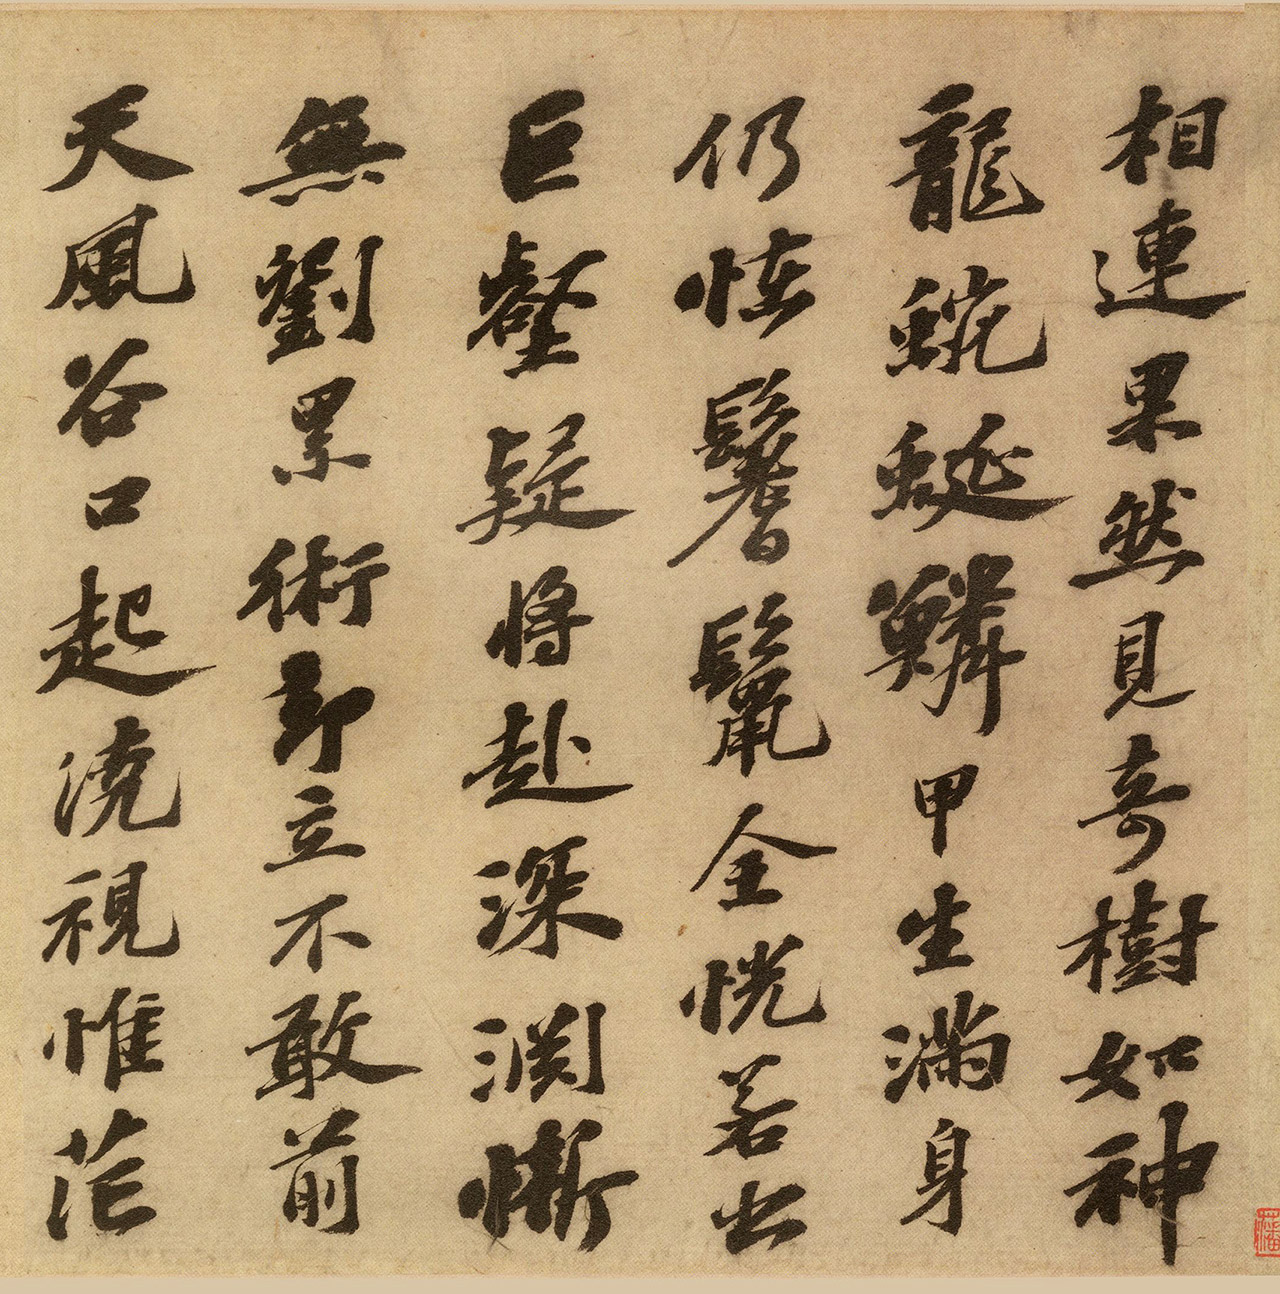 相連果然見奇樹如神
龍蜿蜒鱗甲生滿身
仍恠鬐鬣全恍若出
巨壑疑將赴深渕慚
無劉累術却立不敢前
天風谷口起澆視惟茫